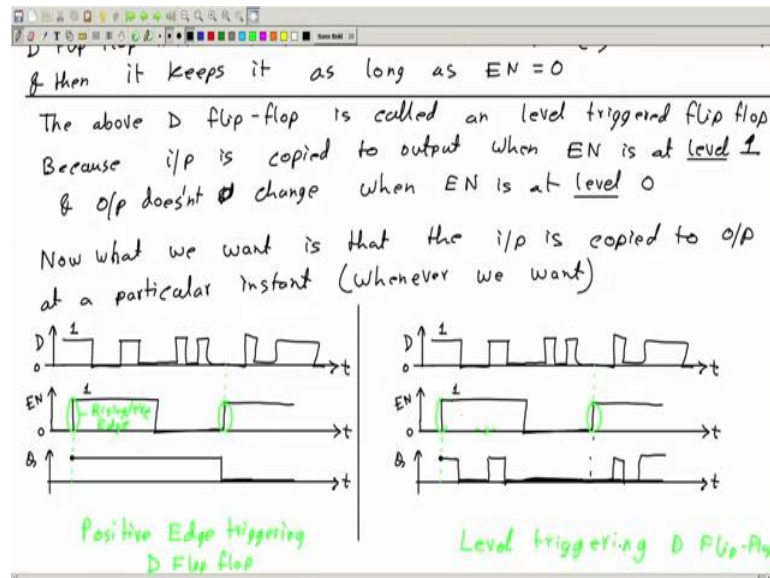 D flip flop
& then it keeps it as long as EN = 0
The above D flip-flop is called an level triggered flip flop
Because i/p is copied to output when EN is at level 1
& o/p does'nt change when EN is at level 0
Now what we want is that the i/p is copied to o/p
at a particular instant (whenever we want)
D 1 0 t
EN 1 0 t
Rising/+ve
Edge
Q t
Positive Edge triggering
D Flip flop
D 1 0 t
EN 1 0 t
Q t
Level triggering D Flip-Flo